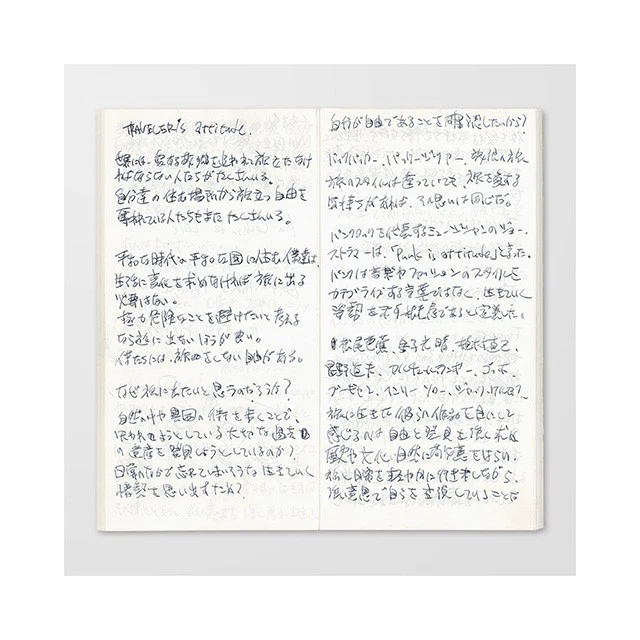 TRAVELER's attitude.
世界には、愛する故郷を追われ旅をたなけ
ればならない人たちがたくさんいる。
自分達の住む場所から旅立つ自由を
奪われている人たちもまたたくさんいる。
平和な時代の平和な国に住む僕達は、
生活に変化を求めなければ旅に出る
必要はない。
極力危険なことを避けたいと考える
なら旅に出ないほうが良い。
僕たちには、旅をしない自由がある。
なぜ旅に出たいと思うのだろうか?
自然の中や異国の街を歩くことで、
失われようとしている大切な過去
の遺産を発見しようとしているのか?
日常のなかで忘れてしまいそうな生きていく
情熱を思い出すため?
自分が自由であることを確認したいから?
バックパッカー、パッケージツアー、
旅のスタイルは違っていても、旅を愛する
気持ちがあれば、その思いは同じだ。
パンクロックを代表するミュージシャンのジョー・
ストラマーは、「Punk is attitude」と言った。
パンクは音楽やファッションのスタイルを
カテゴライズする言葉ではなく、生きていく
姿勢を示す態度であると定義した。
松尾芭蕉、金子光晴、植村直己、
星野道夫、ゴッホ、
ゴーギャン、ヘンリー・ソロー、ジャック・
旅に生きた彼らの作品を目にして
感じるのは自由と発見を強く求め
歴史や文化、自然に敬意をはらい、
旅と日常を軽やかに行き来しながら、
強い意思で自らを表現していることだ